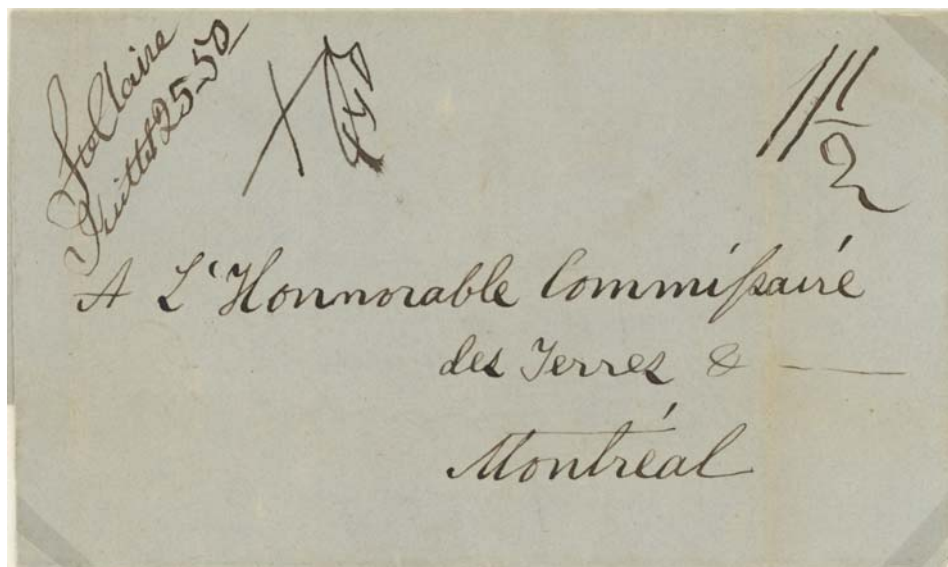 Ste Claire
Juillet 25-50
11 1/2
A L'Honnorable Commiſsaire
des Terres & —
Montréal